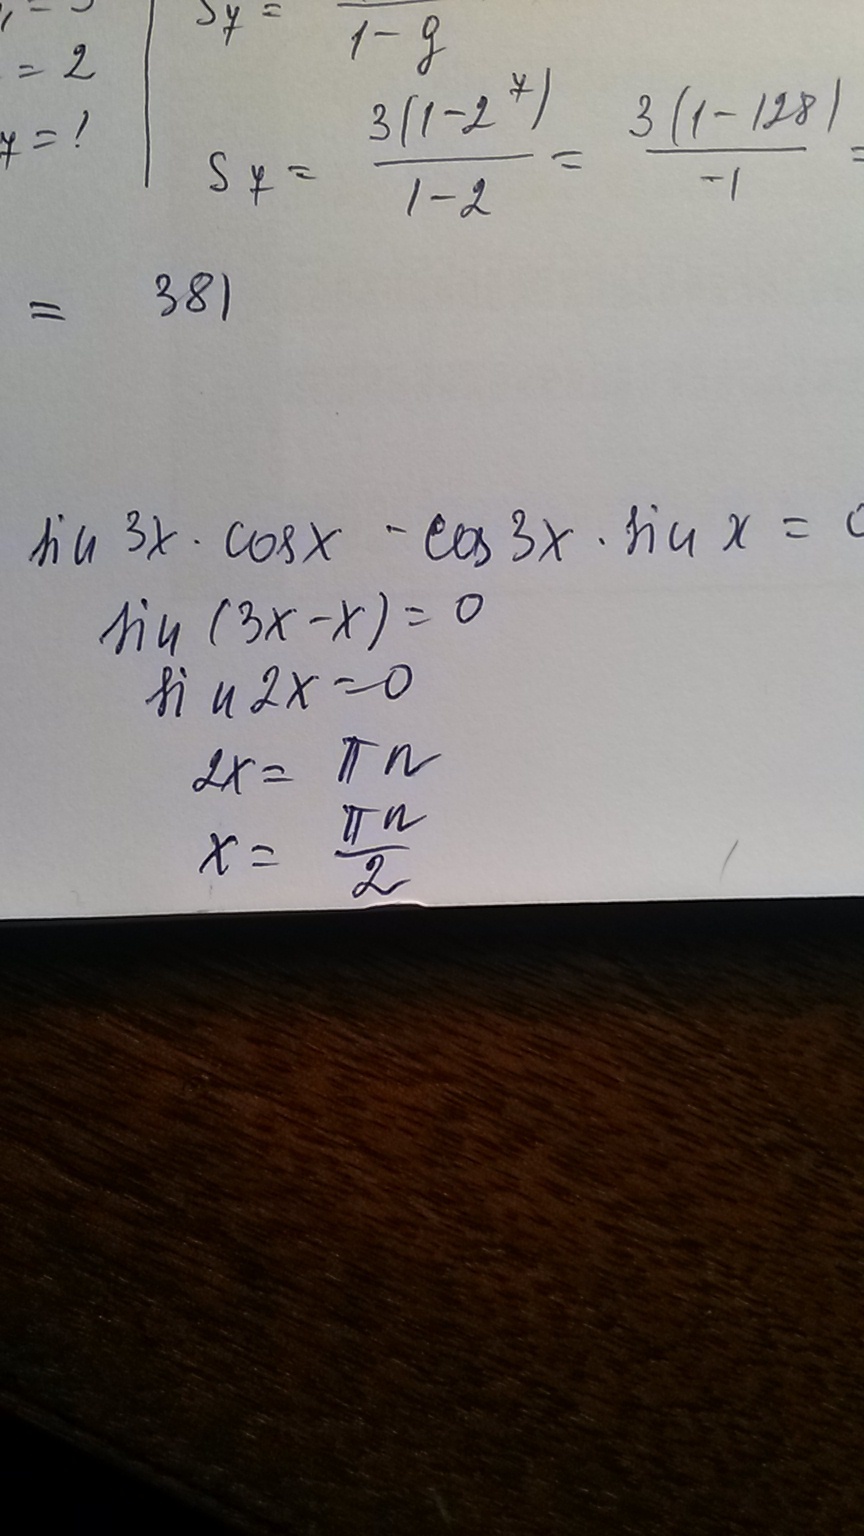 = 2
S7 =
1-q
7 = ?
S7 = 3(1-2^7) / 1-2 = 3(1-128) / -1 =
= 381
sin 3x · cosx - cos 3x · sin x = 0
sin (3x-x) = 0
sin 2x = 0
2x = πn
x = πn / 2